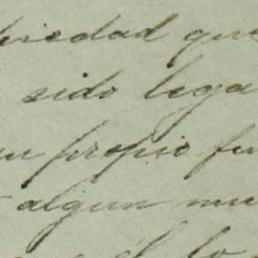 piedad que
sido lega
su propio fu
algun mue